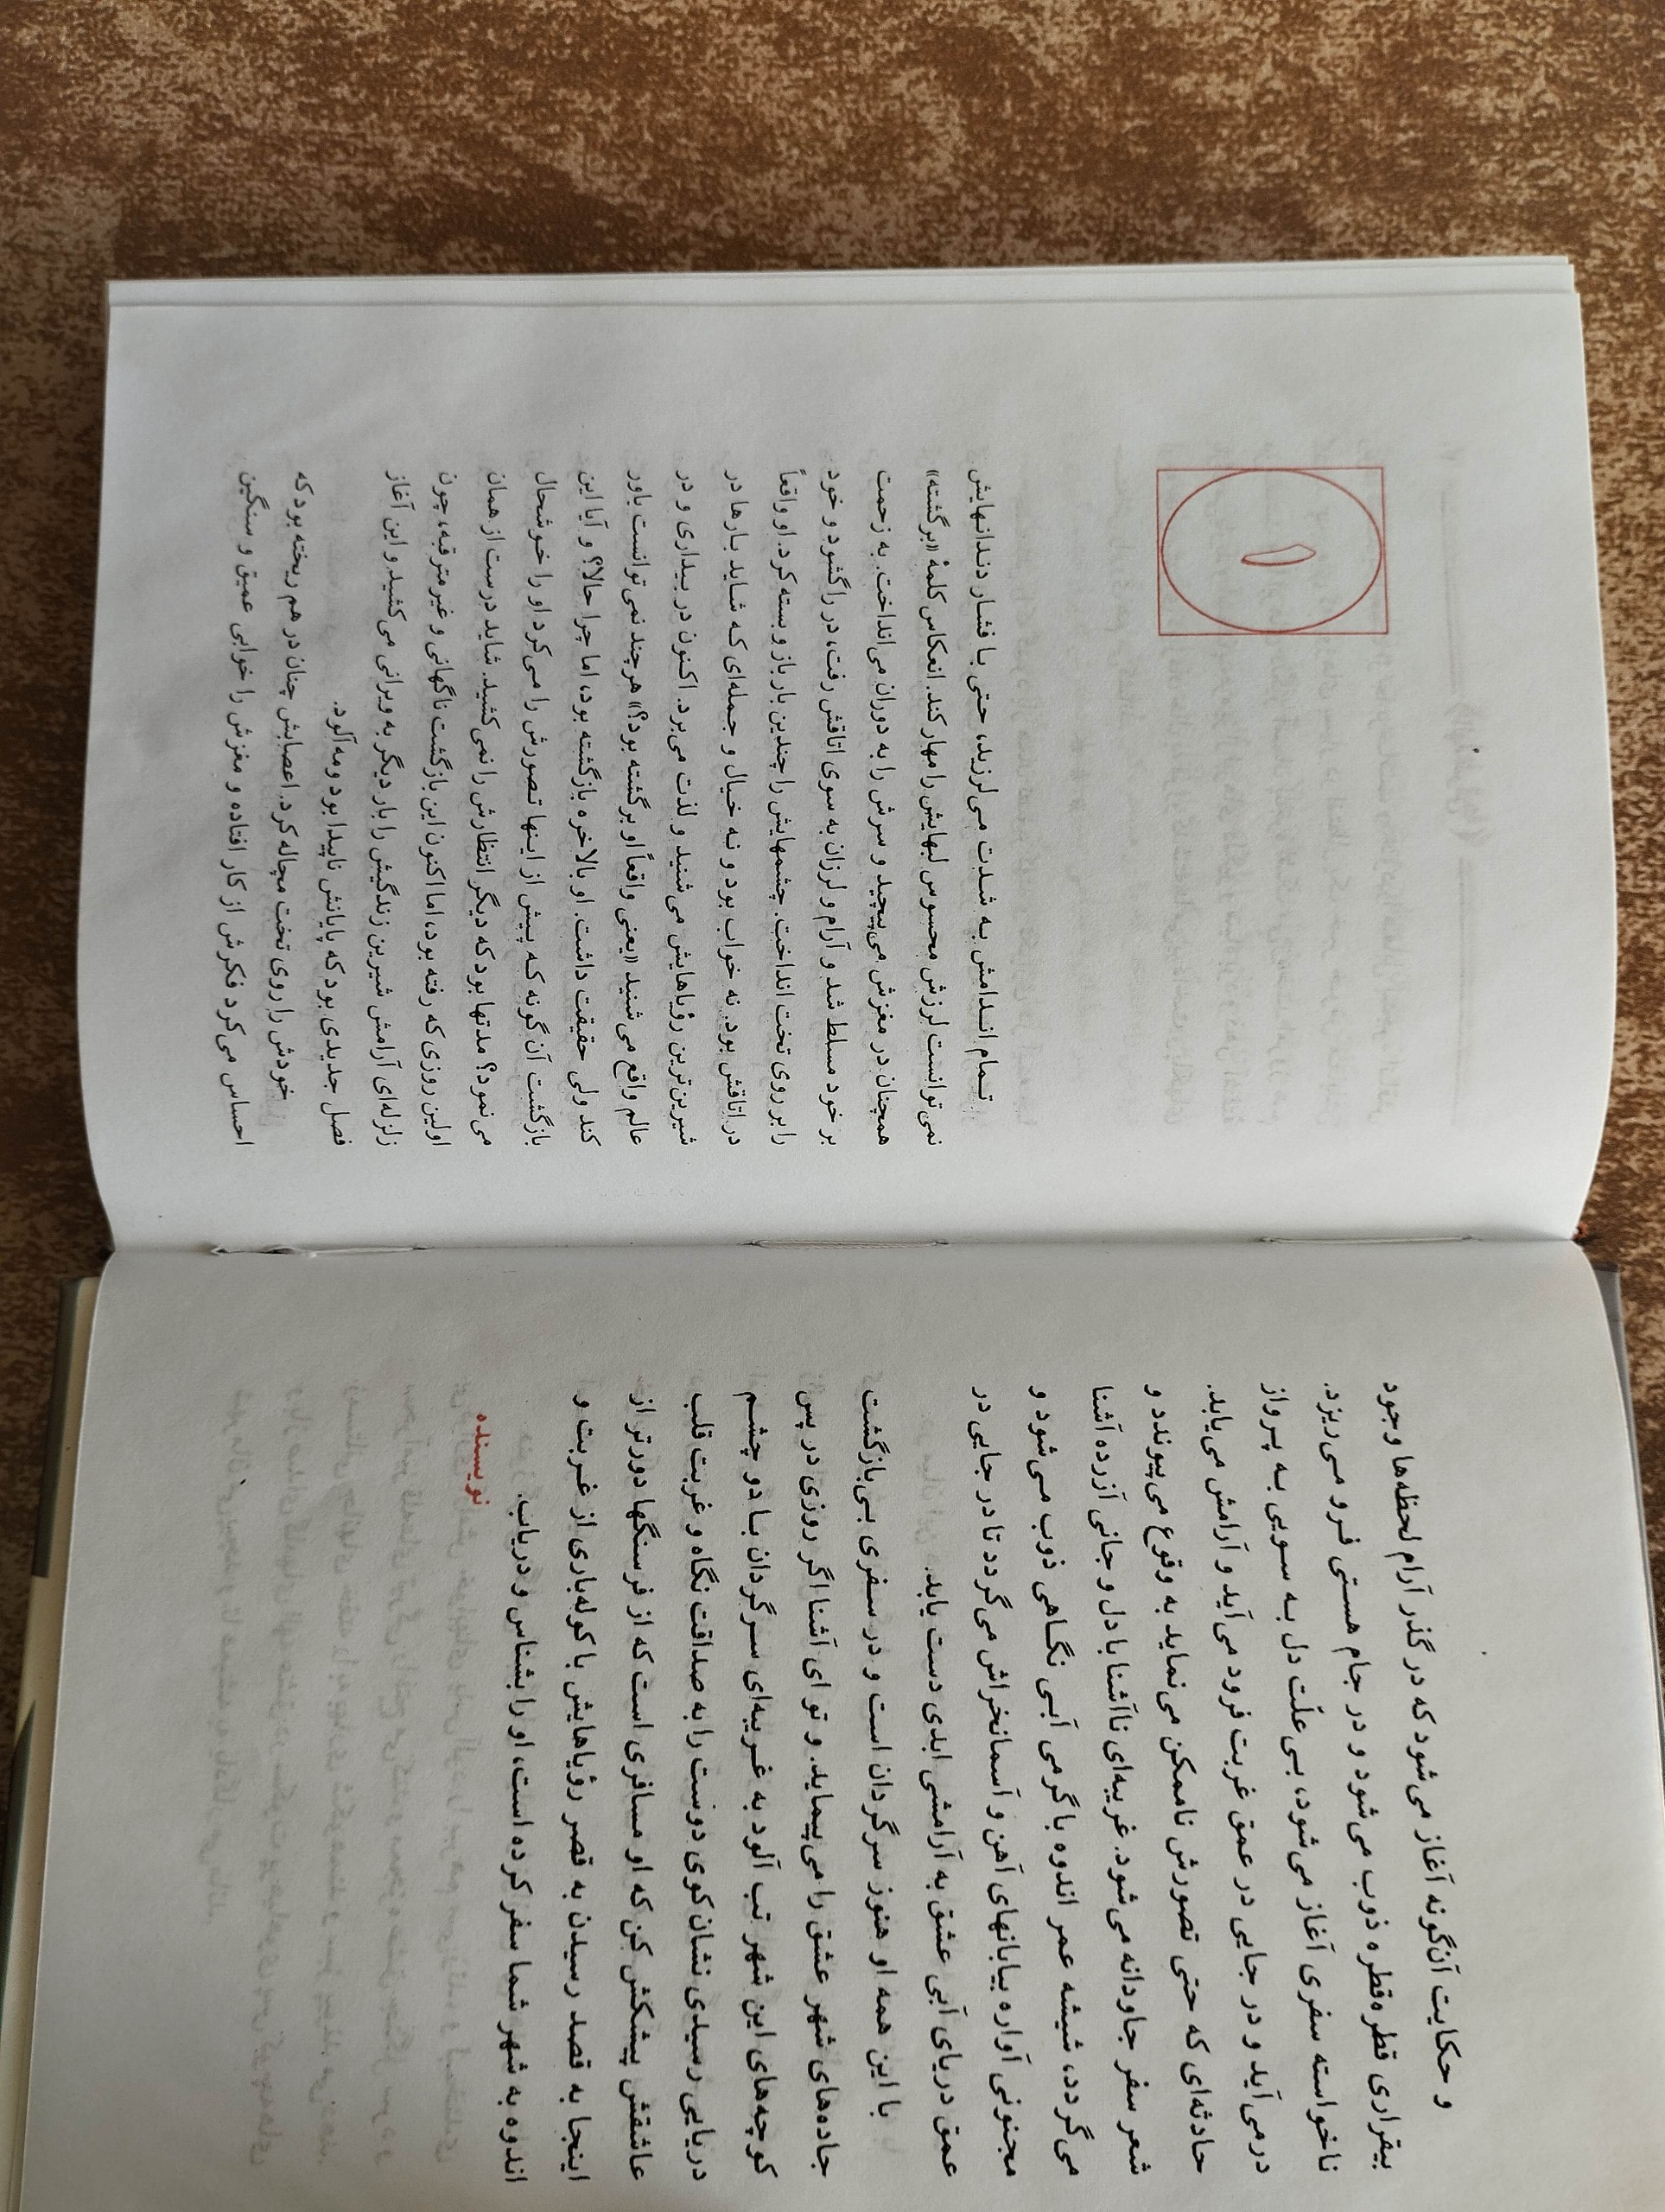 و حکایت آن‌گونه آغاز می‌شود که در گذر آرام لحظه‌ها وجود
بیقراری قطره‌قطره ذوب می‌شود و در جام هستی فرو می‌ریزد.
ناخواسته سفری آغاز می‌شود، بی‌علّت دل به سویی به پرواز
درمی‌آید و در جایی در عمق غربت فرود می‌آید و آرامش می‌یابد.
حادثه‌ای که حتی تصورش ناممکن می‌نماید به وقوع می‌پیوندد و
شعر سفر جاودانه می‌شود. غریبه‌ای ناآشنا با دل و جانی آزرده آشنا
می‌گردد، شیشه عمر اندوه با گرمی آبی نگاهی ذوب می‌شود و
مجنونی آواره بیابانهای آهن و آسمانخراش می‌گردد تا در جایی در
عمق دریای آبی عشق به آرامشی ابدی دست یابد.
با این همه او هنوز سرگردان است و در سفری بی‌بازگشت
جاده‌های شهر عشق را می‌پیماید. و تو ای آشنا اگر روزی در پس
کوچه‌های این شهر تب آلود به غریبه‌ای سرگردان با دو چشم
دریایی رسیدی نشان کوی دوست را به صداقت نگاه و غربت قلب
عاشقش پیشکش کن که او مسافری است که از فرسنگها دورتر از
اینجا به قصد رسیدن به قصر رؤیاهایش با کوله‌باری از غربت و
اندوه به شهر شما سفر کرده است، او را بشناس و دریاب.
نویسنده
۱
تمام اندامش به شدت می‌لرزید، حتی با فشار دندانهایش
نمی‌توانست لرزش محسوس لبهایش را مهار کند. انعکاس کلمهٔ «برگشته»
همچنان در مغزش می‌پیچید و سرش را به دوران می‌انداخت. به زحمت
بر خود مسلط شد و آرام و لرزان به سوی اتاقش رفت، در را گشود و خود
را بر روی تخت انداخت. چشمهایش را چندین بار باز و بسته کرد. او واقعاً
در اتاقش بود. نه خواب بود و نه خیال و جمله‌ای که شاید بارها در
شیرین‌ترین رؤیاهایش می‌شنید و لذت می‌برد. اکنون در بیداری و در
عالم واقع می‌شنید «یعنی واقعاً او برگشته بود؟» هر چند نمی‌توانست باور
کند ولی حقیقت داشت. او بالاخره بازگشته بود، اما چرا حالا؟ و آیا این
بازگشت آن گونه که پیش از اینها تصورش را می‌کرد او را خوشحال
می‌نمود؟ مدتها بود که دیگر انتظارش را نمی‌کشید. شاید درست از همان
اولین روزی که رفته بود، اما اکنون این بازگشت ناگهانی و غیرمترقبه، چون
زلزله‌ای آرامش شیرین زندگیش را بار دیگر به ویرانی می‌کشید و این آغاز
فصل جدیدی بود که پایانش ناپیدا بود و مه‌آلود.
خودش را روی تخت مچاله کرد. اعصابش چنان در هم ریخته بود که
احساس می‌کرد فکرش از کار افتاده و مغزش را خوابی عمیق و سنگین